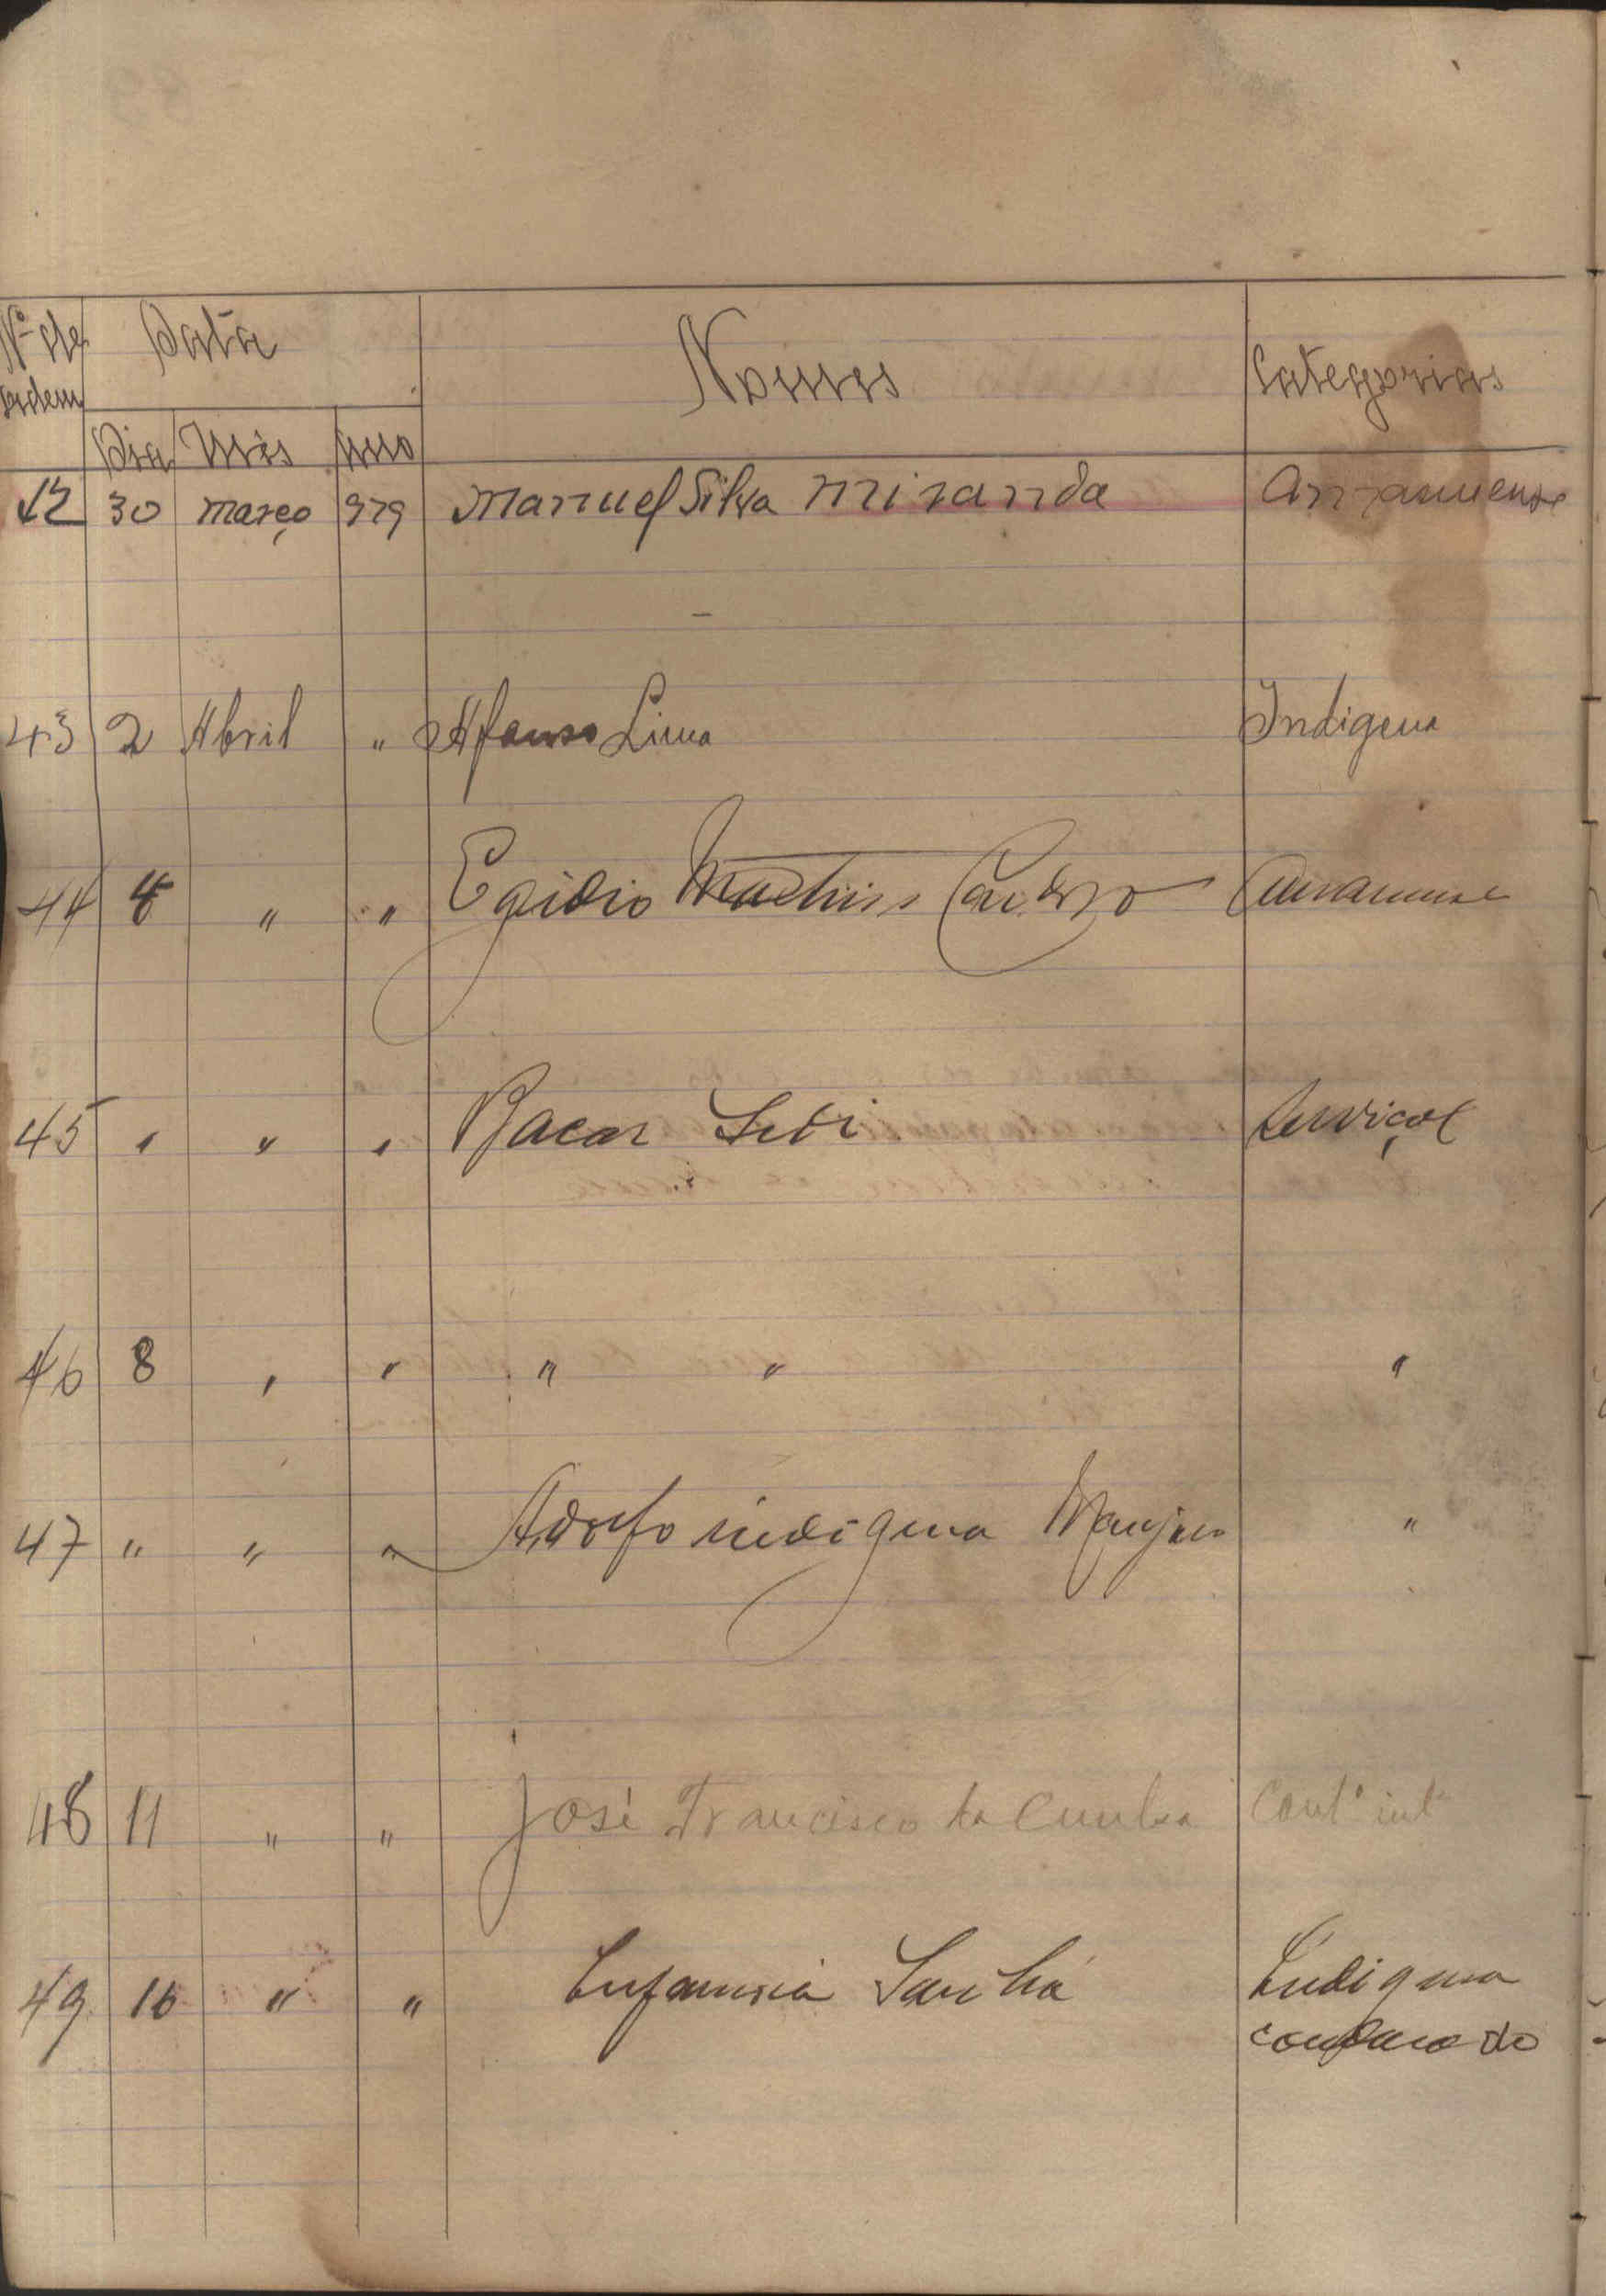 Nº de ordem Data Nomes Categorias
Dia Mês Ano
42 30 março 929 Manuel Silva Miranda Amanuense
43 2 Abril " Afonso Lima Indigena
44 4 " " Egidio Cardozo Amanuense
45 " " " Bacar Serviçal
46 8 " " " " "
47 " " " Adolfo indigena Manjaco "
48 11 " " José Francisco da Cunha Contº intº
49 16 " " Sanhá Indigena